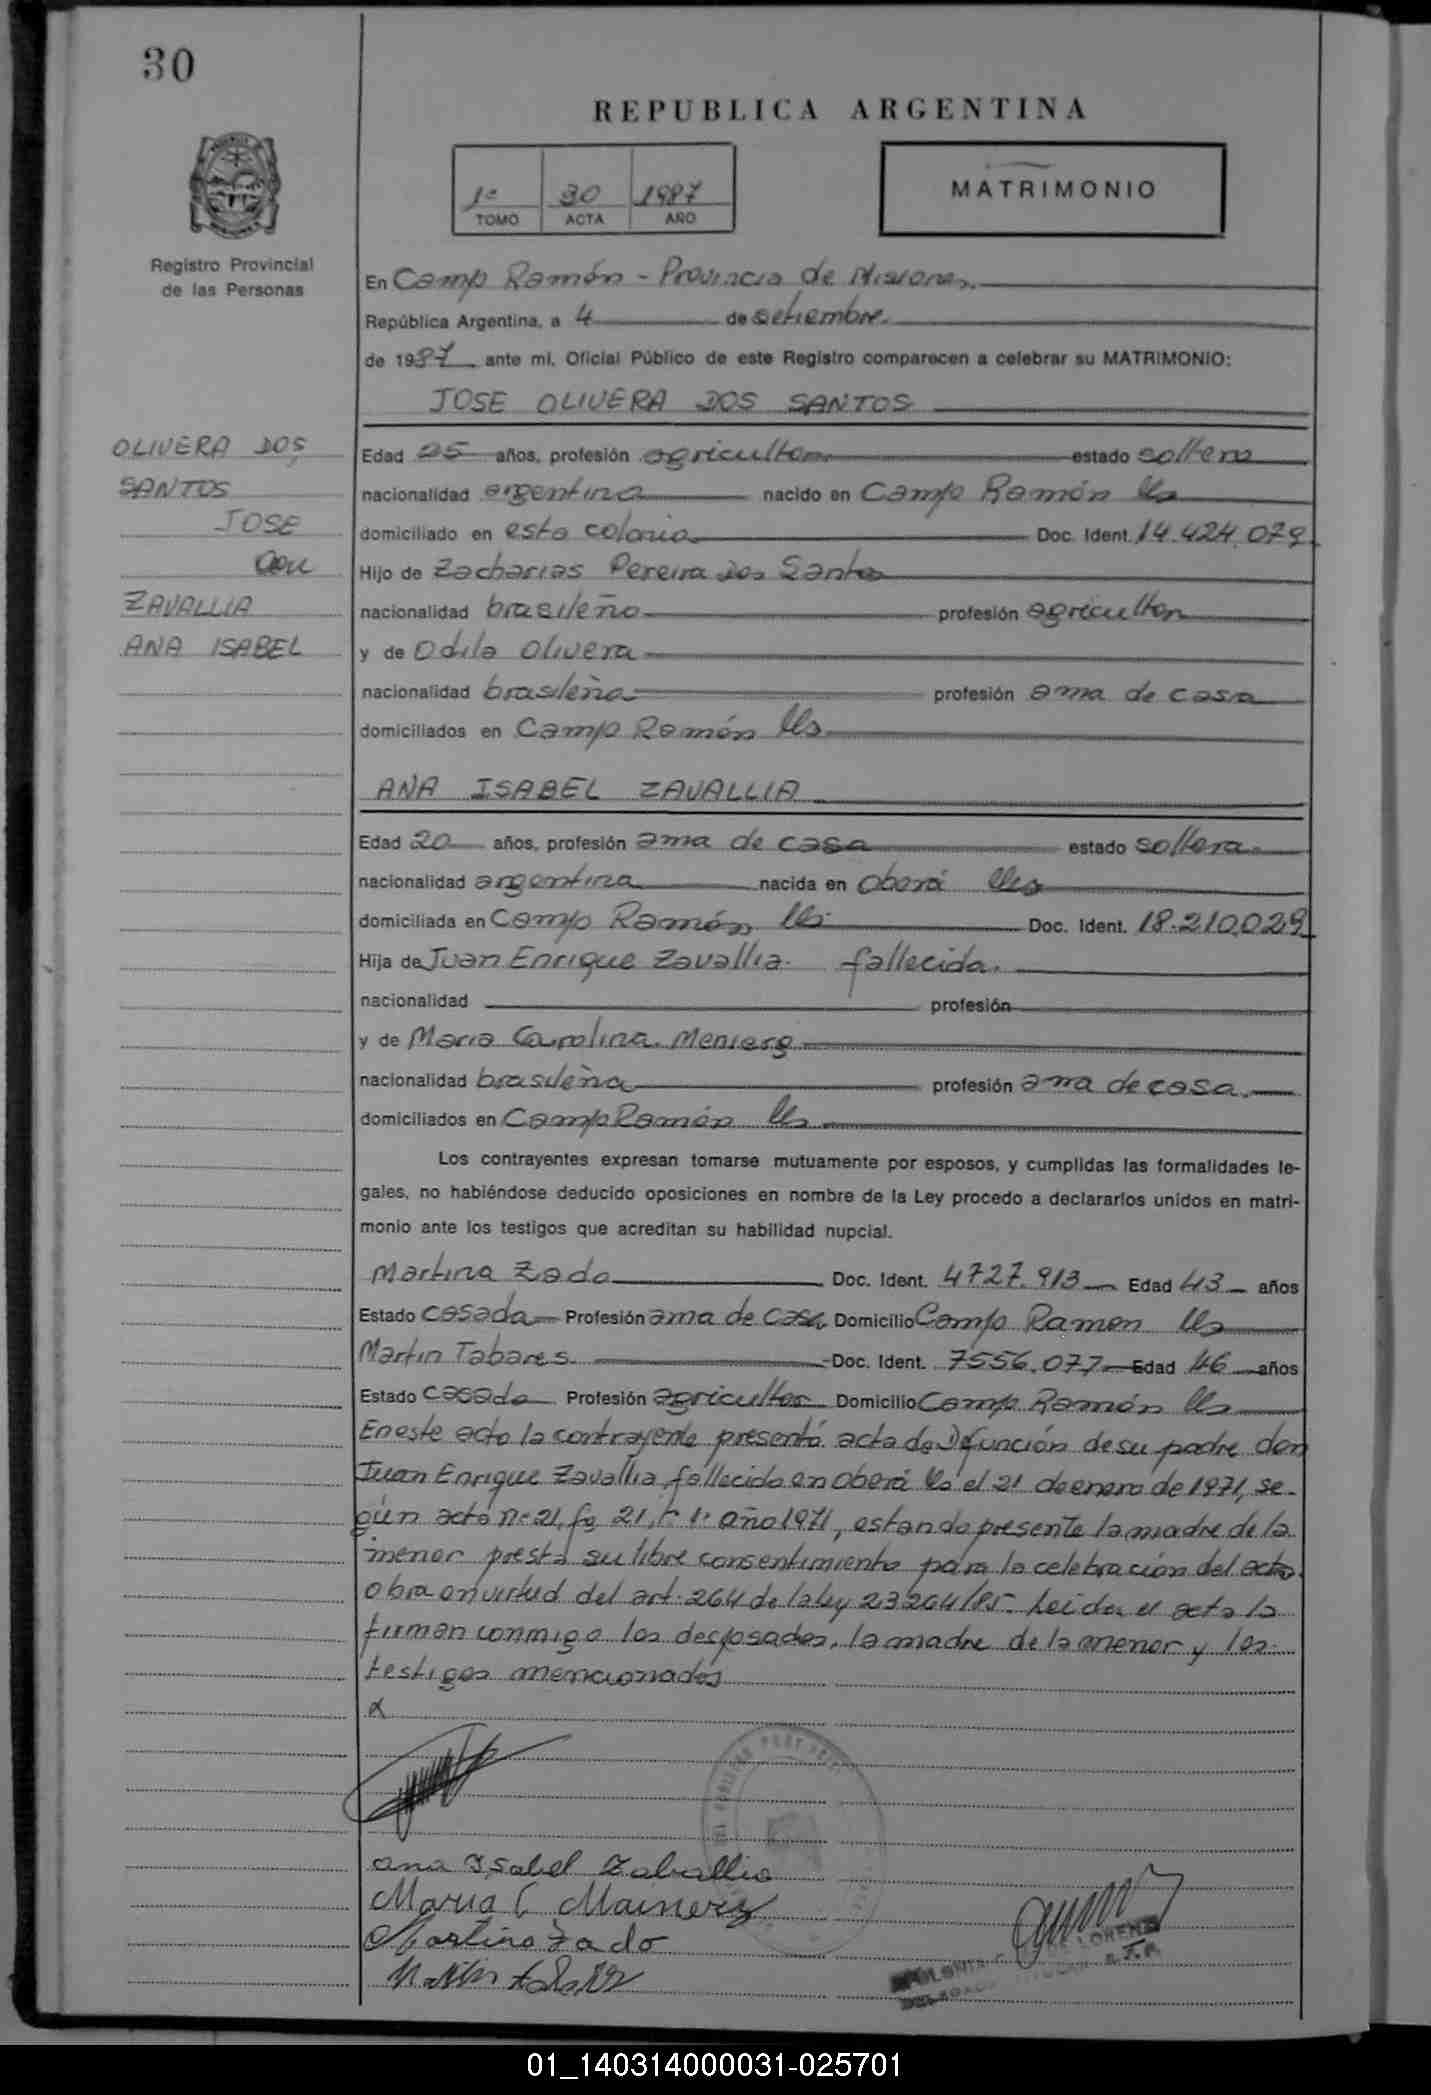 30
REPUBLICA ARGENTINA
1º 30 1987
TOMO ACTA AÑO
MATRIMONIO
Registro Provincial
de las Personas
En Campo Ramón - Provincia de Misiones.
República Argentina, a 4 de setiembre.
de 1987 ante mí, Oficial Público de este Registro comparecen a celebrar su MATRIMONIO:
JOSE OLIVERA DOS SANTOS
OLIVERA DOS
SANTOS
JOSE
con
ZAVALLIA
ANA ISABEL
Edad 25 años, profesión agricultor. estado soltero
nacionalidad argentina nacido en Campo Ramón Ms
domiciliado en esta colonia Doc. Ident. 14.424.079
Hijo de Zacharias Pereira Dos Santos
nacionalidad brasileño profesión agricultor
y de Odila Olivera
nacionalidad brasileña profesión ama de casa
domiciliados en Campo Ramón Ms
ANA ISABEL ZAVALLIA
Edad 20 años, profesión ama de casa estado soltera.
nacionalidad argentina nacida en Oberá Ms
domiciliada en Campo Ramón Ms Doc. Ident. 18.210.029
Hija de Juan Enrique Zavallia. fallecida.
nacionalidad profesión
y de Maria Carolina. Menserg
nacionalidad brasileña profesión ama de casa.
domiciliados en Campo Ramón Ms
Los contrayentes expresan tomarse mutuamente por esposos, y cumplidas las formalidades le-
gales, no habiéndose deducido oposiciones en nombre de la Ley procedo a declararlos unidos en matri-
monio ante los testigos que acreditan su habilidad nupcial.
Martina Zado Doc. Ident. 4727.913 Edad 43 años
Estado casada Profesión ama de casa Domicilio Campo Ramon Ms
Martin Tabares Doc. Ident. 7556.077 Edad 46 años
Estado casado Profesión agricultor Domicilio Campo Ramón Ms
En este acto la contrayente presentó acta de Defunción de su padre don
Juan Enrique Zavallia fallecido en Oberá Ms el 21 de enero de 1971, se-
gún acta nº 21, fº 21, tº 1º año 1971, estando presente la madre de la
menor presta su libre consentimiento para la celebración del acto.
obra en virtud del art. 264 de la ley 23264/85. Leida el acta la
firman conmigo los desposados, la madre de la menor y los
testigos mencionados
Ana Isabel Zaballia
Maria C Mainerz
Martina Zado
Martin Tabares
01_140314000031-025701